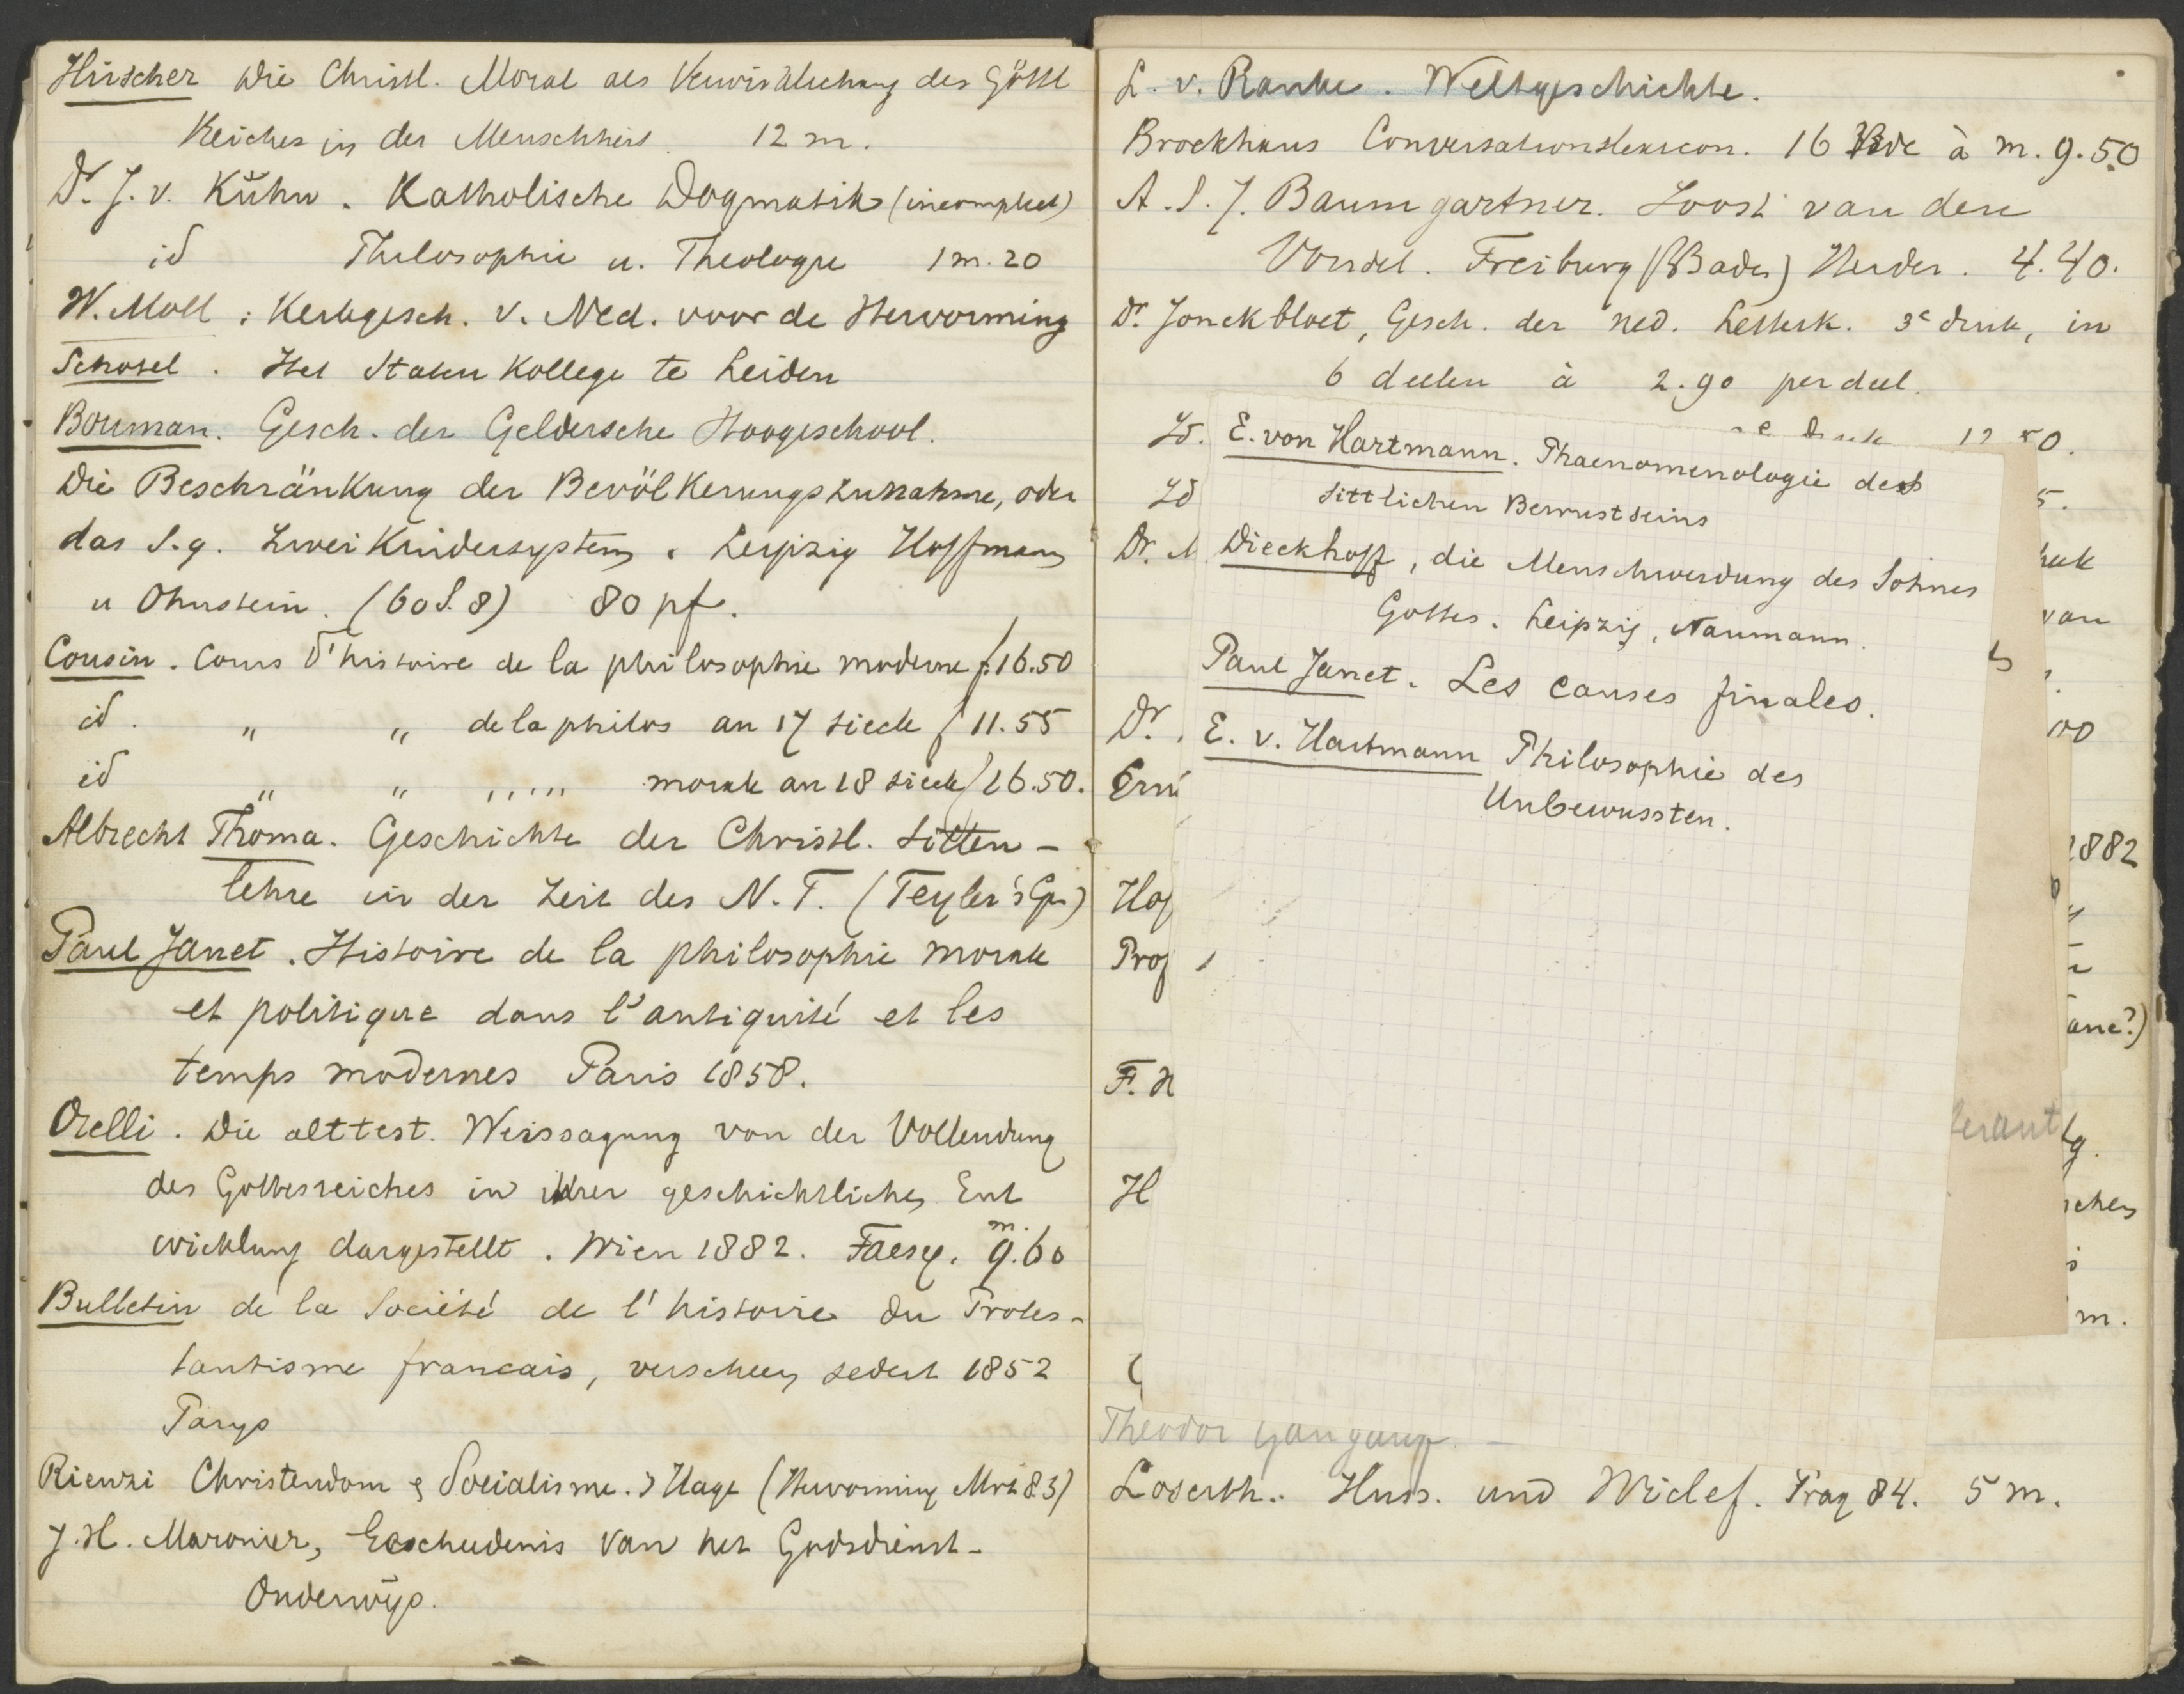 Hirscher Die Christl. Moral als Verwirklichung des Göttl
Reiches in der Menschheit 12 m.
Dr. J. v. Kuhn. Katholische Dogmatik (incompleet)
id Philosophie u. Theologie 1 m. 20
W. Moll: Kerkgesch. v. Ned. voor de Hervorming
Schotel. Het Staten Kollege te Leiden
Bouman. Gesch. der Geldersche Hoogeschool.
Die Beschränkung der Bevölkerungszunahme, oder
das s.g. Zwei Kindersystem. Leipzig Hoffmann
u Ohnstein. (60 S. 8) 80 pf.
Cousin. Cours d'histoire de la philosophie moderne f. 16.50
id. " " de la philos au 17 siecle f 11.55
id " " " " morale au 18 siecle f 16.50.
Albrecht Thoma. Geschichte der Christl. Sitten-
lehre in der Zeit des N. T. (Teyler's Gen)
Paul Janet. Histoire de la philosophie morale
et politique dans l'antiquité et les
temps modernes Paris 1858.
Orelli. Die alttest. Weissagung von der Vollendung
des Gottesreiches in ihrer geschichtlichen Ent
wicklung dargestellt. Wien 1882. Faesy. m. 9.60
Bulletin de la Société de l'histoire du Protes-
tantisme francais, verscheen sedert 1852
Parys
Rienzi Christendom & Socialisme. 's Hage (Hervorming Mrt 83)
J. H. Maronier, Geschiedenis van het Godsdienst-
Onderwijs.
L. v. Ranke. Weltgeschichte.
Brockhaus Conversationslexicon. 16 Bde à m. 9.50
A. S. J. Baumgartner. Joost van den
Vondel. Freiburg (Baden) Herder. 4.40.
Dr. Jonckbloet, Gesch. der Ned. Letterk. 3e druk, in
6 deelen à 2.90 per deel.
Id. e druk 12 50.
E. von Hartmann. Phaenomenologie des
Id 5.
sittlichen Bewustseins
Dr.
Dieckhoff, die Menschwerdung des Sohnes
van
Gottes. Leipzig, Naumann.
Paul Janet. Les causes finales.
Dr.
E. v. Hartmann Philosophie des
Unbewussten.
1882
Prof
F. H
H
m.
Theodor Gangauf. -
Loserth. Huss. und Wiclef. Prag 84. 5 m.